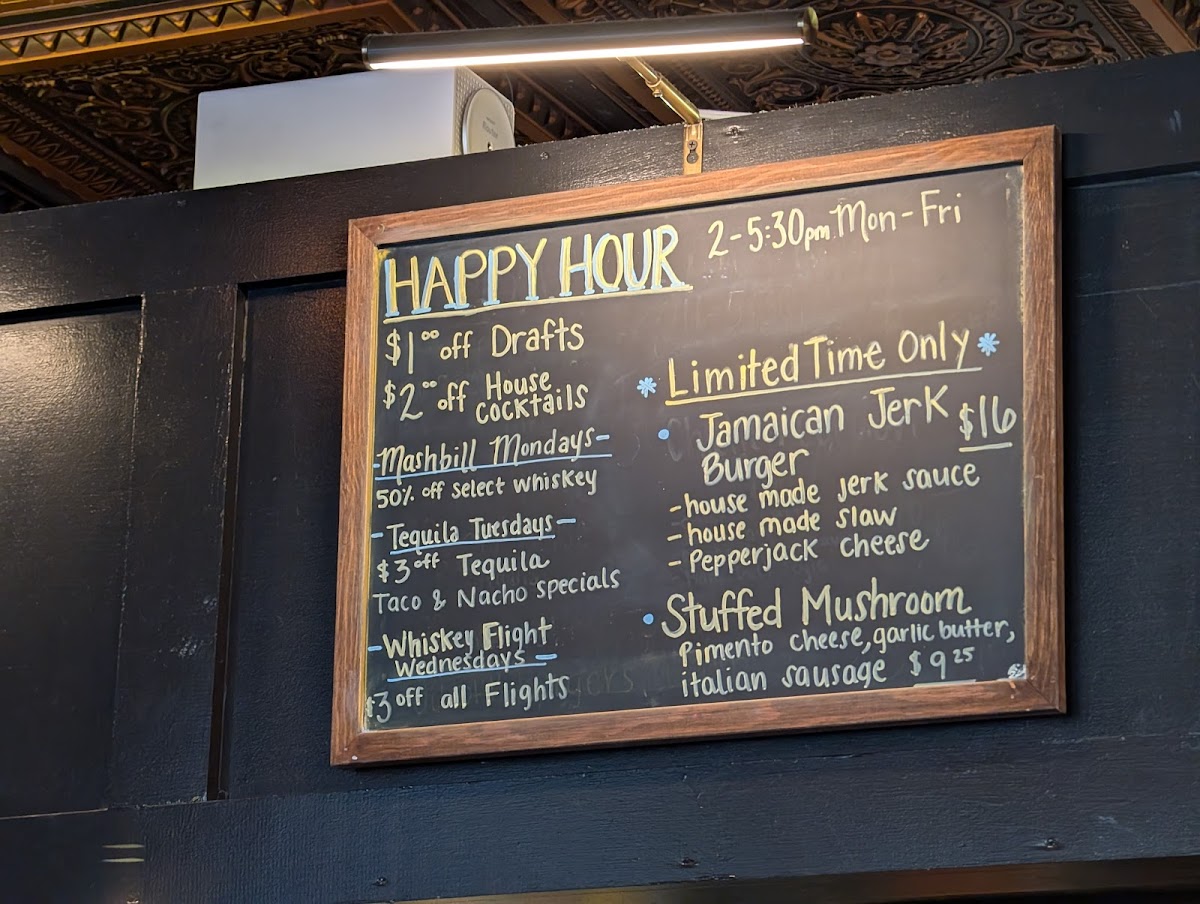 HAPPY HOUR 2-5:30pm Mon-Fri
$1.00 off Drafts
$2.00 off House
cocktails
-Mashbill Mondays-
50% off select whiskey
- Tequila Tuesdays -
$3 off Tequila
Taco & Nacho specials
- Whiskey Flight
Wednesdays -
$3 off all Flights
* Limited Time Only *
• Jamaican Jerk $16
Burger
- house made jerk sauce
- house made slaw
- Pepperjack cheese
• Stuffed Mushroom
Pimento cheese, garlic butter,
italian sausage $9.25